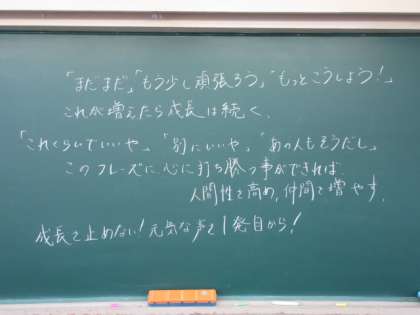 「まだまだ」「もう少し頑張ろう」「もっとこうしよう！」
これが増えたら成長は続く、
「これくらいでいいや」「別にいいや」「あの人もそうだし」
このフレーズに心に打ち勝つ事ができれば
人間性を高め、仲間を増やす。
成長を止めない！元気な声を1発目から！